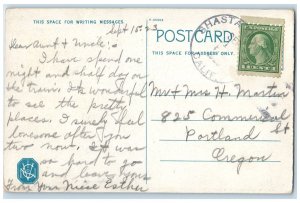 THIS SPACE FOR WRITING MESSAGES
Sept 15 23
Dear Aunt & Uncle:
I have spend one
night and half day on
the train. It's wonderful
to see the pretty
places. I surely feel
lonesome after you
two now. It was
so hard to go
and leave you
From Your Niece Esther
POSTCARD
THIS SPACE FOR ADDRESS ONLY.
SHASTA
CALIF.
Mr + Mrs H. Martin
825 Commercial
St
Portland
Oregon